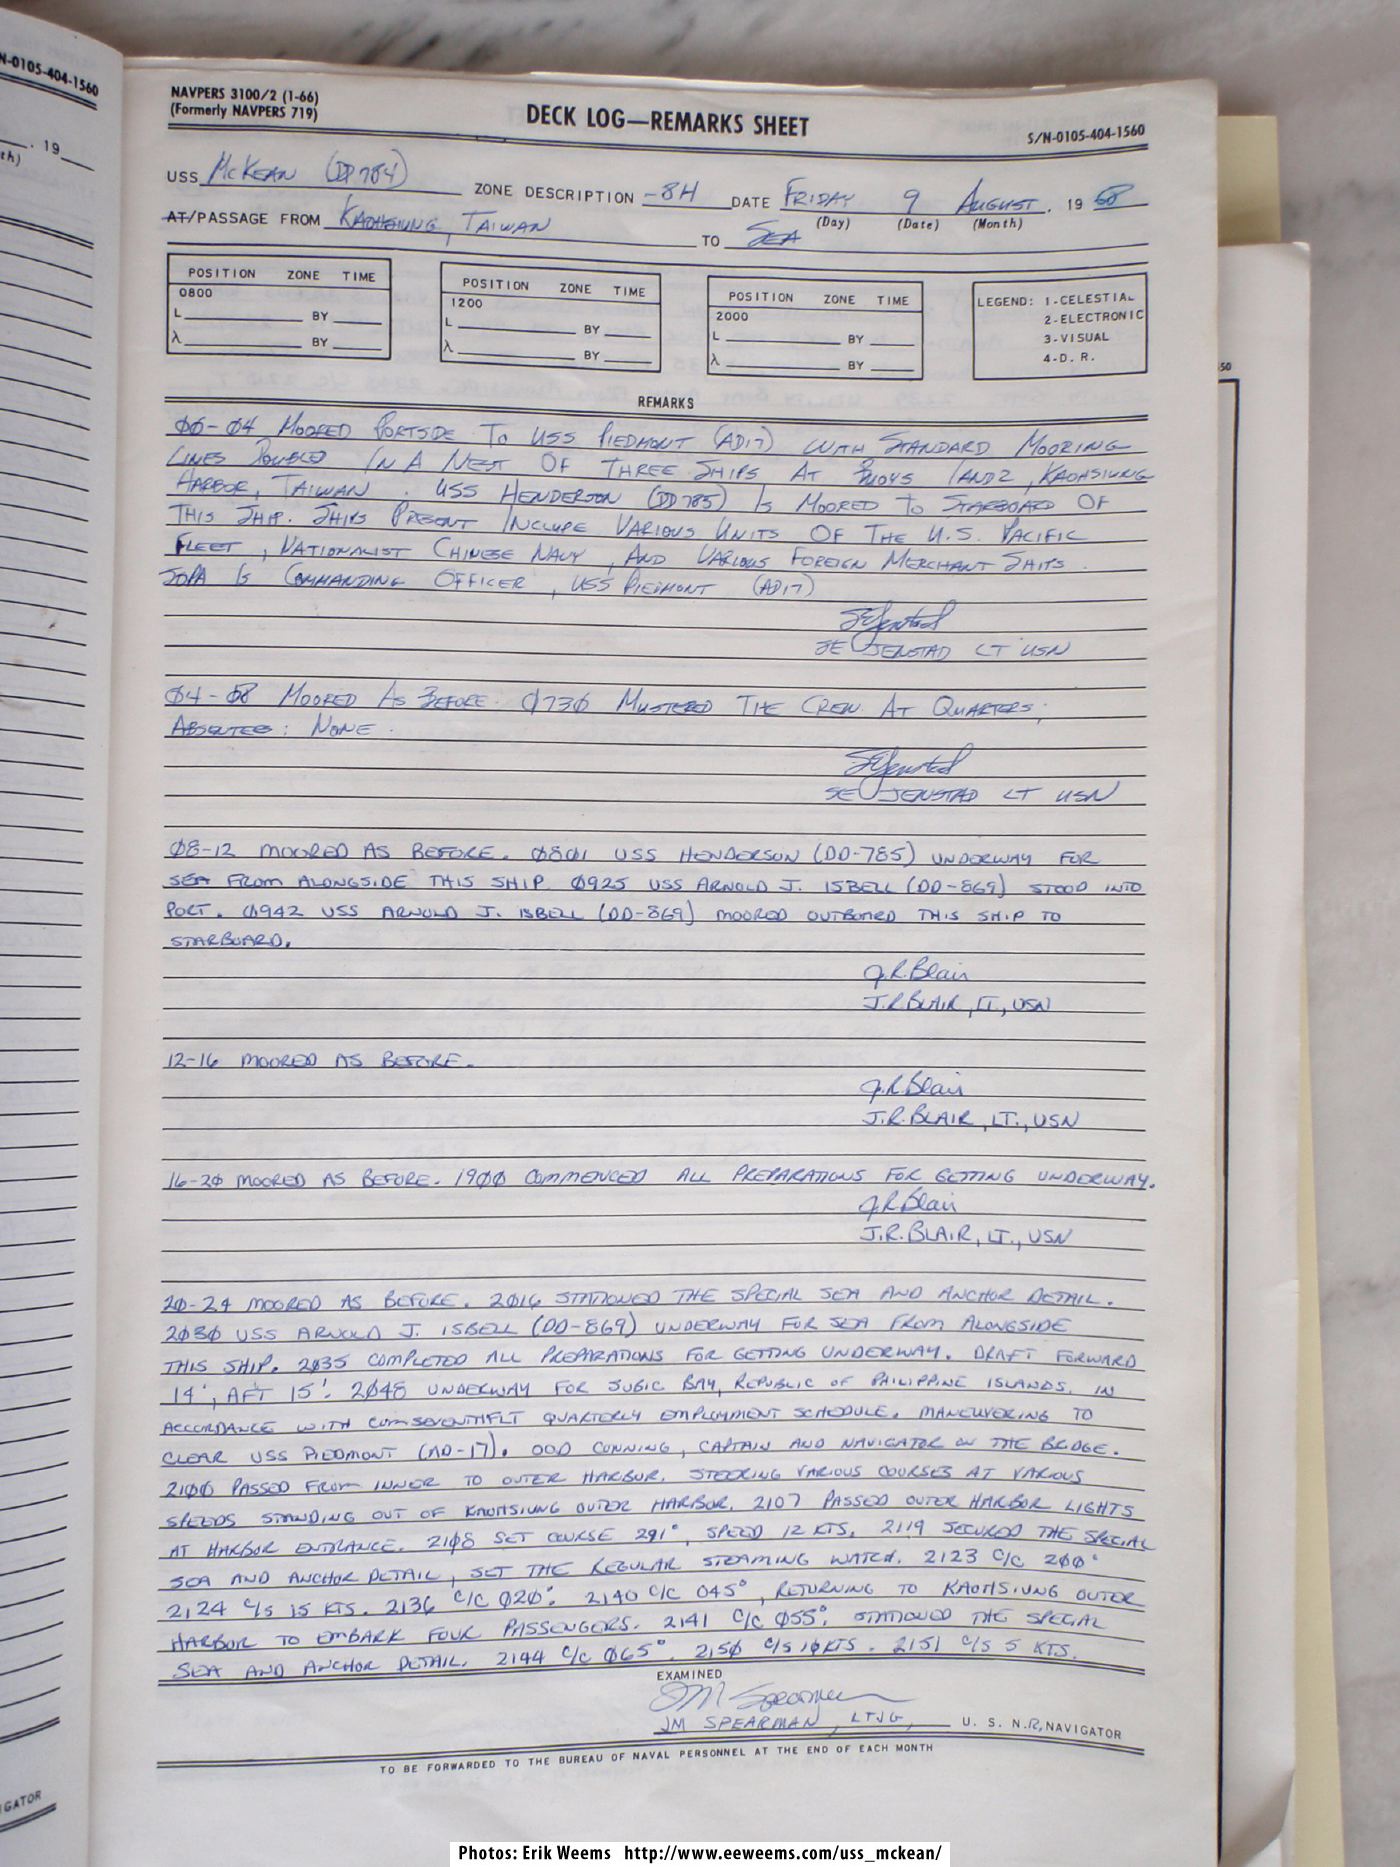 N-0105-404-1560
. 19
th)
IGATOR
NAVPERS 3100/2 (1-66)
(Formerly NAVPERS 719)
DECK LOG—REMARKS SHEET
S/N-0105-404-1560
USS McKEAN (DD784) ZONE DESCRIPTION -8H DATE FRIDAY 9 AUGUST, 19 68
(Day) (Date) (Month)
AT/PASSAGE FROM KAOHSIUNG, TAIWAN TO SEA
POSITION ZONE TIME
0800
L BY
λ BY
POSITION ZONE TIME
1200
L BY
λ BY
POSITION ZONE TIME
2000
L BY
λ BY
LEGEND: 1-CELESTIAL
2-ELECTRONIC
3-VISUAL
4-D. R.
50
REMARKS
00-04 MOORED PORTSIDE TO USS PIEDMONT (AD17) WITH STANDARD MOORING
LINES DOUBLED IN A NEST OF THREE SHIPS AT BUOYS 1AND2, KAOHSIUNG
HARBOR, TAIWAN. USS HENDERSON (DD785) IS MOORED TO STARBOARD OF
THIS SHIP. SHIPS PRESENT INCLUDE VARIOUS UNITS OF THE U.S. PACIFIC
FLEET, NATIONALIST CHINESE NAVY, AND VARIOUS FOREIGN MERCHANT SHIPS.
SOPA IS COMMANDING OFFICER, USS PIEDMONT (AD17)
SEJenstad
SE JENSTAD LT USN
04-08 MOORED AS BEFORE. 0730 MUSTERED THE CREW AT QUARTERS;
ABSENTEES: NONE.
SEJenstad
SE JENSTAD LT USN
08-12 MOORED AS BEFORE. 0801 USS HENDERSON (DD-785) UNDERWAY FOR
SEA FROM ALONGSIDE THIS SHIP. 0925 USS ARNOLD J. ISBELL (DD-869) STOOD INTO
PORT. 0942 USS ARNOLD J. ISBELL (DD-869) MOORED OUTBOARD THIS SHIP TO
STARBOARD.
J.R.Blair
J.R.BLAIR, LT., USN
12-16 MOORED AS BEFORE.
J.R.Blair
J.R.BLAIR, LT., USN
16-20 MOORED AS BEFORE. 1900 COMMENCED ALL PREPARATIONS FOR GETTING UNDERWAY.
J.R.Blair
J.R.BLAIR, LT., USN
20-24 MOORED AS BEFORE. 2016 STATIONED THE SPECIAL SEA AND ANCHOR DETAIL.
2030 USS ARNOLD J. ISBELL (DD-869) UNDERWAY FOR SEA FROM ALONGSIDE
THIS SHIP. 2035 COMPLETED ALL PREPARATIONS FOR GETTING UNDERWAY. DRAFT FORWARD
14', AFT 15'. 2048 UNDERWAY FOR SUBIC BAY, REPUBLIC OF PHILIPPINE ISLANDS, IN
ACCORDANCE WITH COMSEVENTHFLT QUARTERLY EMPLOYMENT SCHEDULE. MANEUVERING TO
CLEAR USS PIEDMONT (AD-17). OOD CONNING, CAPTAIN AND NAVIGATOR ON THE BRIDGE.
2100 PASSED FROM INNER TO OUTER HARBOR. STEERING VARIOUS COURSES AT VARIOUS
SPEEDS STANDING OUT OF KAOHSIUNG OUTER HARBOR. 2107 PASSED OUTER HARBOR LIGHTS
AT HARBOR ENTRANCE. 2108 SET COURSE 291°, SPEED 12 KTS. 2119 SECURED THE SPECIAL
SEA AND ANCHOR DETAIL, SET THE REGULAR STEAMING WATCH. 2123 C/C 200°
2124 C/S 15 KTS. 2136 C/C 020°. 2140 C/C 045°, RETURNING TO KAOHSIUNG OUTER
HARBOR TO EMBARK FOUR PASSENGERS. 2141 C/C 055°. STATIONED THE SPECIAL
SEA AND ANCHOR DETAIL. 2144 C/C 065°. 2150 C/S 10KTS. 2151 C/S 5 KTS.
EXAMINED
JM Spearman
JM SPEARMAN, LTJG, U. S. N.R, NAVIGATOR
TO BE FORWARDED TO THE BUREAU OF NAVAL PERSONNEL AT THE END OF EACH MONTH
Photos: Erik Weems http://www.eeweems.com/uss_mckean/